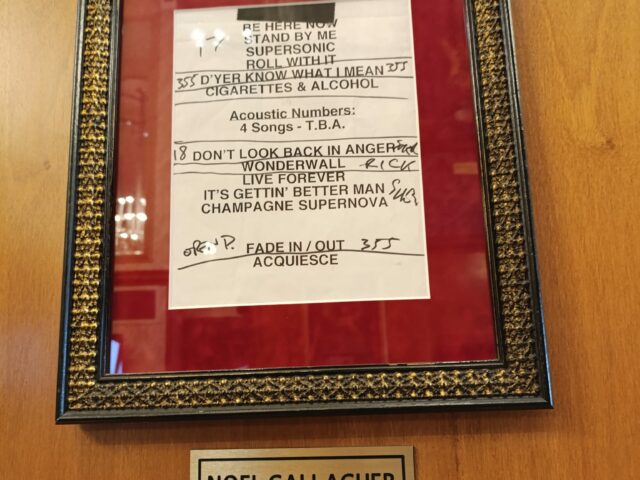 BE HERE NOW
STAND BY ME
SUPERSONIC
ROLL WITH IT
355 D'YER KNOW WHAT I MEAN 355
CIGARETTES & ALCOHOL
Acoustic Numbers:
4 Songs - T.B.A.
18 DON'T LOOK BACK IN ANGER
WONDERWALL RICK
LIVE FOREVER
IT'S GETTIN' BETTER MAN
CHAMPAGNE SUPERNOVA
OPEN P. FADE IN / OUT 355
ACQUIESCE
NOEL GALLAGHER